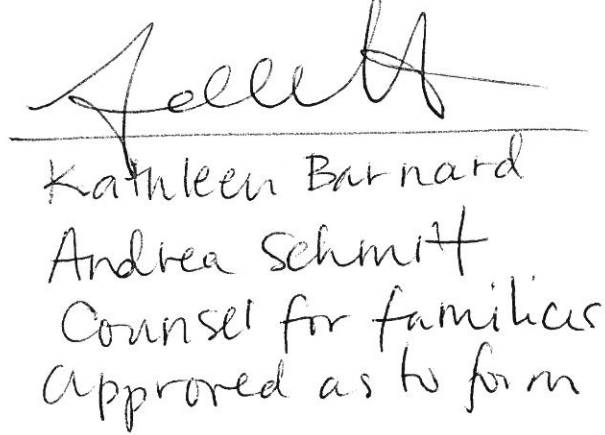 Kathleen Barnard
Andrea Schmitt
Counsel for families
approved as to form